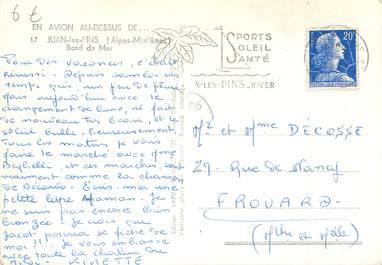 6 €
EN AVION AU-DESSUS DE...
17 JUAN-les-PINS (Alpes-Maritimes)
Bord de Mer
SPORTS
SOLEIL
SANTÉ
N-LES-PINS-HIVER
20F
Pour des vacances, c'était
réussi. Depuis samedi un
temps gris un peu de pluie
mais aujourd'hui avec le
changement de lune, il fait
de nouveau très beau, et le
soleil brille heureusement.
Tous les matins je vous
faire le marché avec Mme
et ces marches sont
vraiment comme la chanson
de Bécaud. Ecris-moi une
petite lettre Maman. Je
ne suis pas encore bien
bronzée. Je vois que
Jacot pourra se ficher de
moi !!! Je vous embrasse
avec toute la chaleur du
Midi. KINETTE
Mr et Mme DÉCOSSE
29 Rue de Nancy
FROUARD
(Mthe et Mlle)